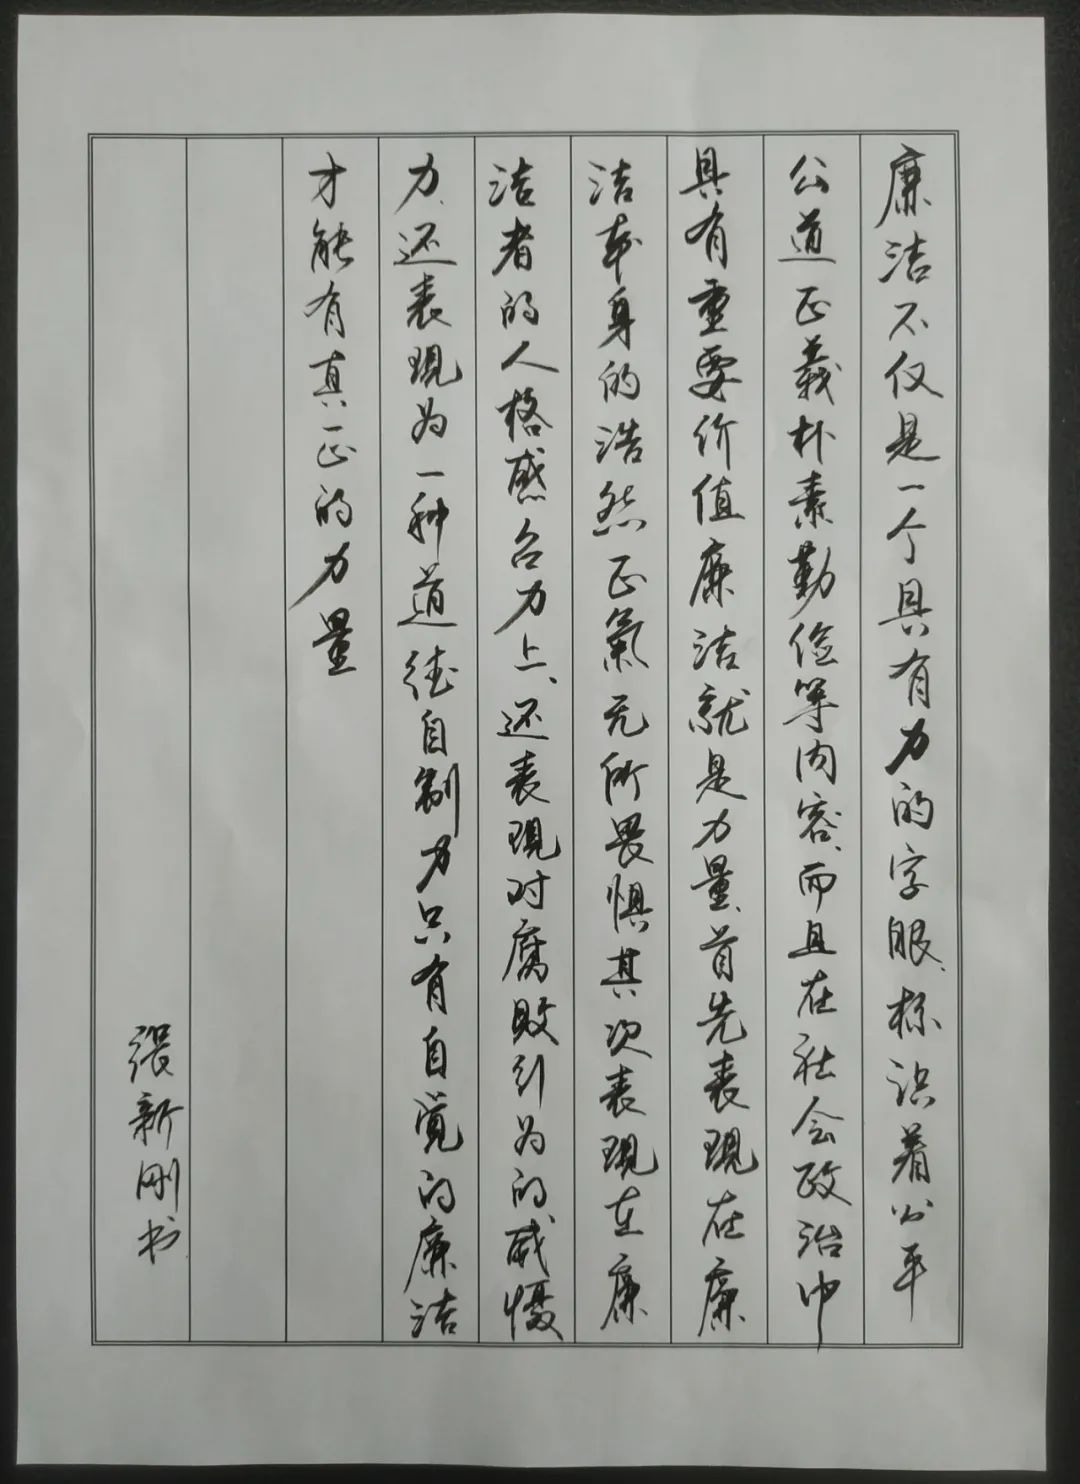 廉洁不仅是一个具有力的字眼、标识着公平
公道正義朴素勤俭等内容、而且在社会政治中
具有重要价值廉洁就是力量、首先表現在廉
洁本身的浩然正氣无所畏惧其次表現在廉
洁者的人格感召力上、还表現对腐败引为的威慑
力、还表現为一种道德自制力只有自觉的廉洁
才能有真正的力量
張新刚书